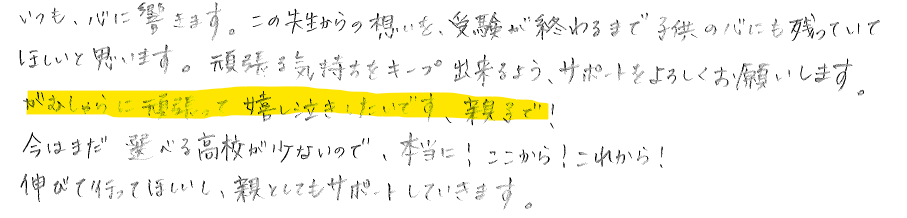 いつも、心に響きます。この先生からの想いを、受験が終わるまで子供の心にも残っていて
ほしいと思います。頑張る気持ちをキープ出来るよう、サポートをよろしくお願いします。
がむしゃらに頑張って嬉し泣きしたいです、親子で!
今はまだ選べる高校が少ないので、本当に!ここから!これから!
伸びて行ってほしいし、親としてもサポートしていきます。